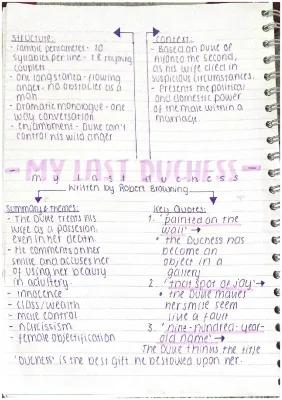 Structure:
- Iambic pentameter - 10
syllables per line - 28 rhyming
couplets
- One long stanza - flowing
anger - no obstacles as a
man
- Dramatic monologue - one
way conversation
- Enjambment - Duke can't
control his wild anger
Context:
- Based on Duke of
Alfonzo the second,
as his wife died in
suspicious circumstances.
- Presents the political
and domestic power
of the male within a
marriage.
- MY LAST DUCHESS -
My last duchess
written by Robert Browning
Summary & themes:
- The Duke treats his
wife as a possesion,
even in her death.
- He comments on her
smile and accuses her
of using her beauty
in adultery.
- innocence
- class/wealth
- male control
- narcissism
- female objectification
Key Quotes:
1. 'painted on the
wall' →
• the Duchess has
become an
object in a
gallery
2. 'that spot of joy' →
• the Duke makes
her smile seem
like a fault
3. 'nine-hundred-year-
old name' →
The Duke thinks the title
'Duchess' is the best gift he bestowed upon her.